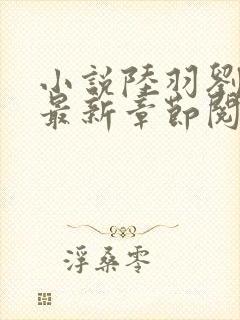 小説陸羽劉
最新章節閱
浮桑零